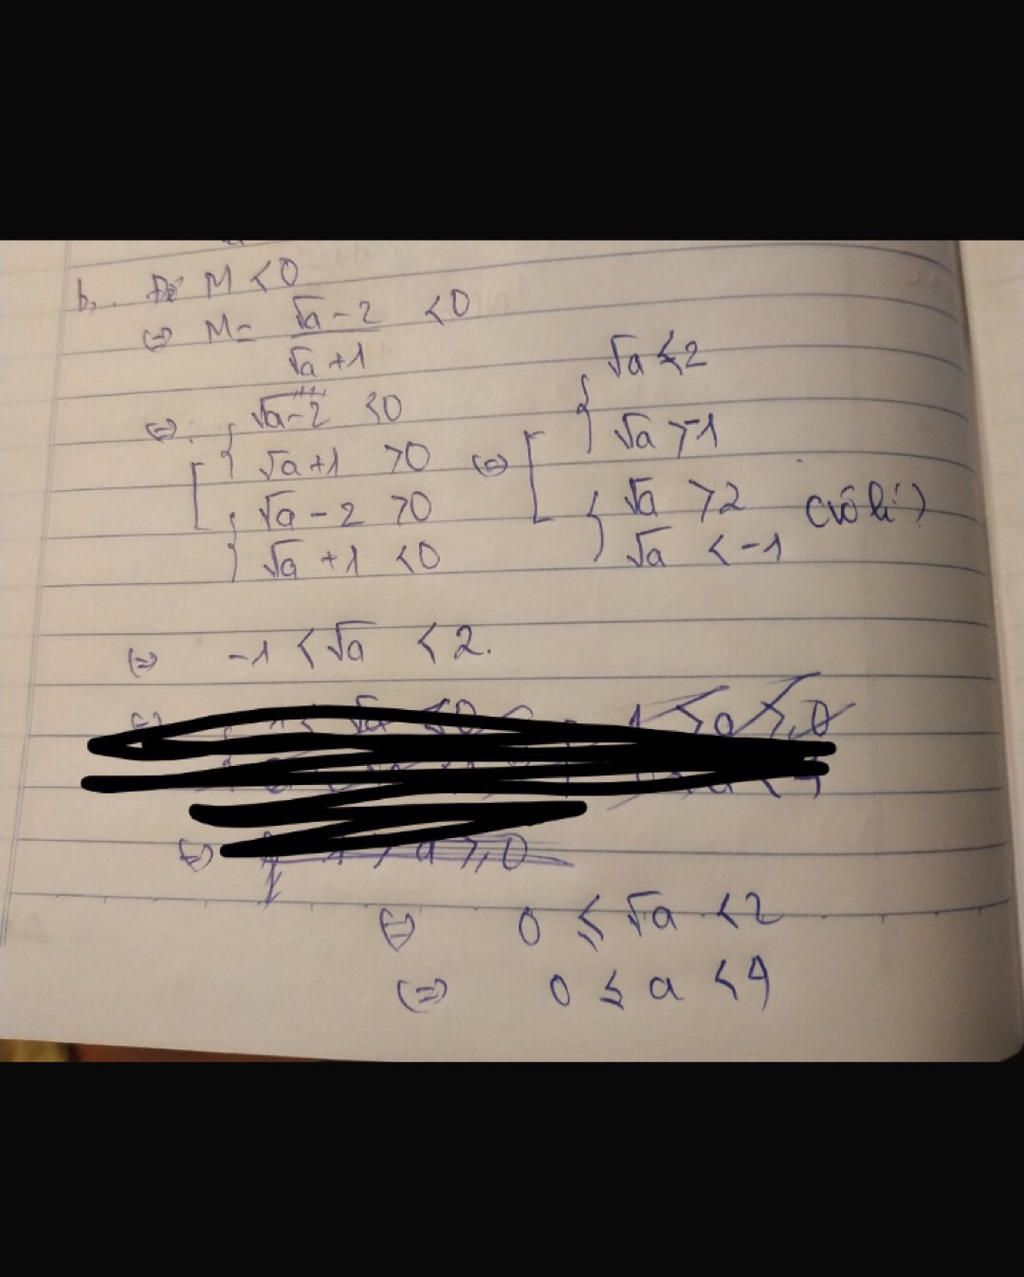 b, Để M < 0
⇔ M = (√a - 2)/(√a + 1) < 0
⇔ [ { √a - 2 < 0
{ √a + 1 > 0
{ √a - 2 > 0
{ √a + 1 < 0
⇔ [ { √a < 2
{ √a > -1
{ √a > 2
{ √a < -1 (vô lí)
⇔ -1 < √a < 2.
⇔ 0 ≤ √a < 2
⇔ 0 ≤ a < 4